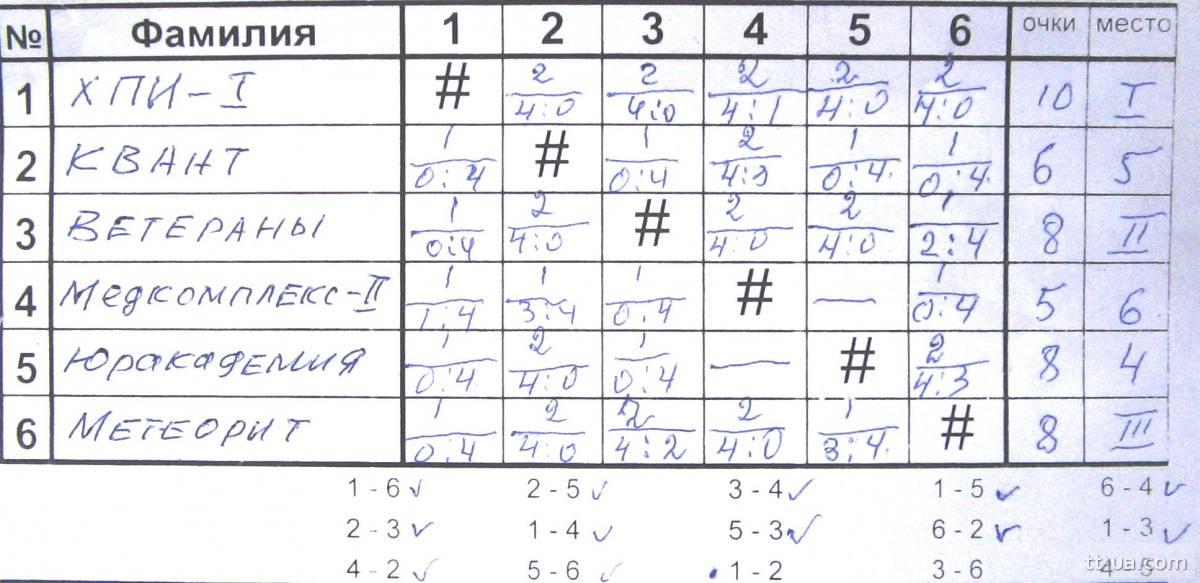 № Фамилия 1 2 3 4 5 6 очки место
1 ХПИ-I # 2 2 2 2 2 10 I
4:0 4:0 4:1 4:0 4:0
2 КВАНТ 1 # 1 2 1 1 6 5
0:4 0:4 4:3 0:4 0:4
3 ВЕТЕРАНЫ 1 2 # 2 2 1 8 II
0:4 4:0 4:0 4:0 2:4
4 Медкомплекс-II 1 1 1 # — 1 5 6
1:4 3:4 0:4 0:4
5 Юракадемия 1 2 1 — # 2 8 4
0:4 4:0 0:4 4:3
6 МЕТЕОРИТ 1 2 2 2 1 # 8 III
0:4 4:0 4:2 4:0 3:4
1 - 6 2 - 5 3 - 4 1 - 5 6 - 4
2 - 3 1 - 4 5 - 3 6 - 2 1 - 3
4 - 2 5 - 6 1 - 2 3 - 6 4 - 5
ttua.com